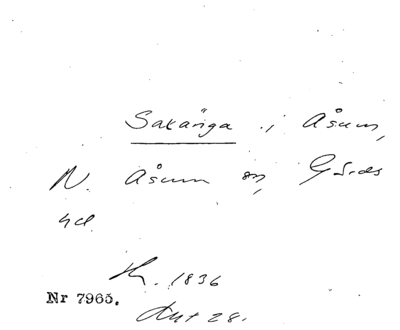 Saxänga i Åsum,
N. Åsum sn, Gärds
hd.
1836
Nr 7965.
Akt 28.